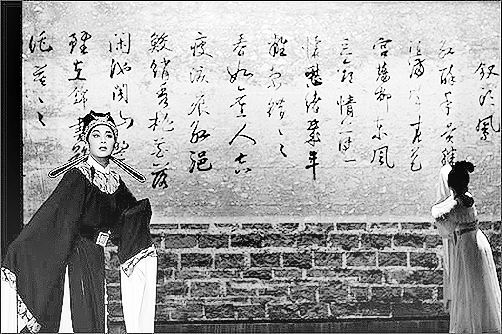 釵头凤
红酥手黄縢
酒满城春色
宫墙柳东风
恶欢情薄一
怀愁绪几年
离索错々々
春如旧人空
瘦泪痕红浥
鲛绡透桃花落
闲池阁山盟
虽在锦书难
托莫々々